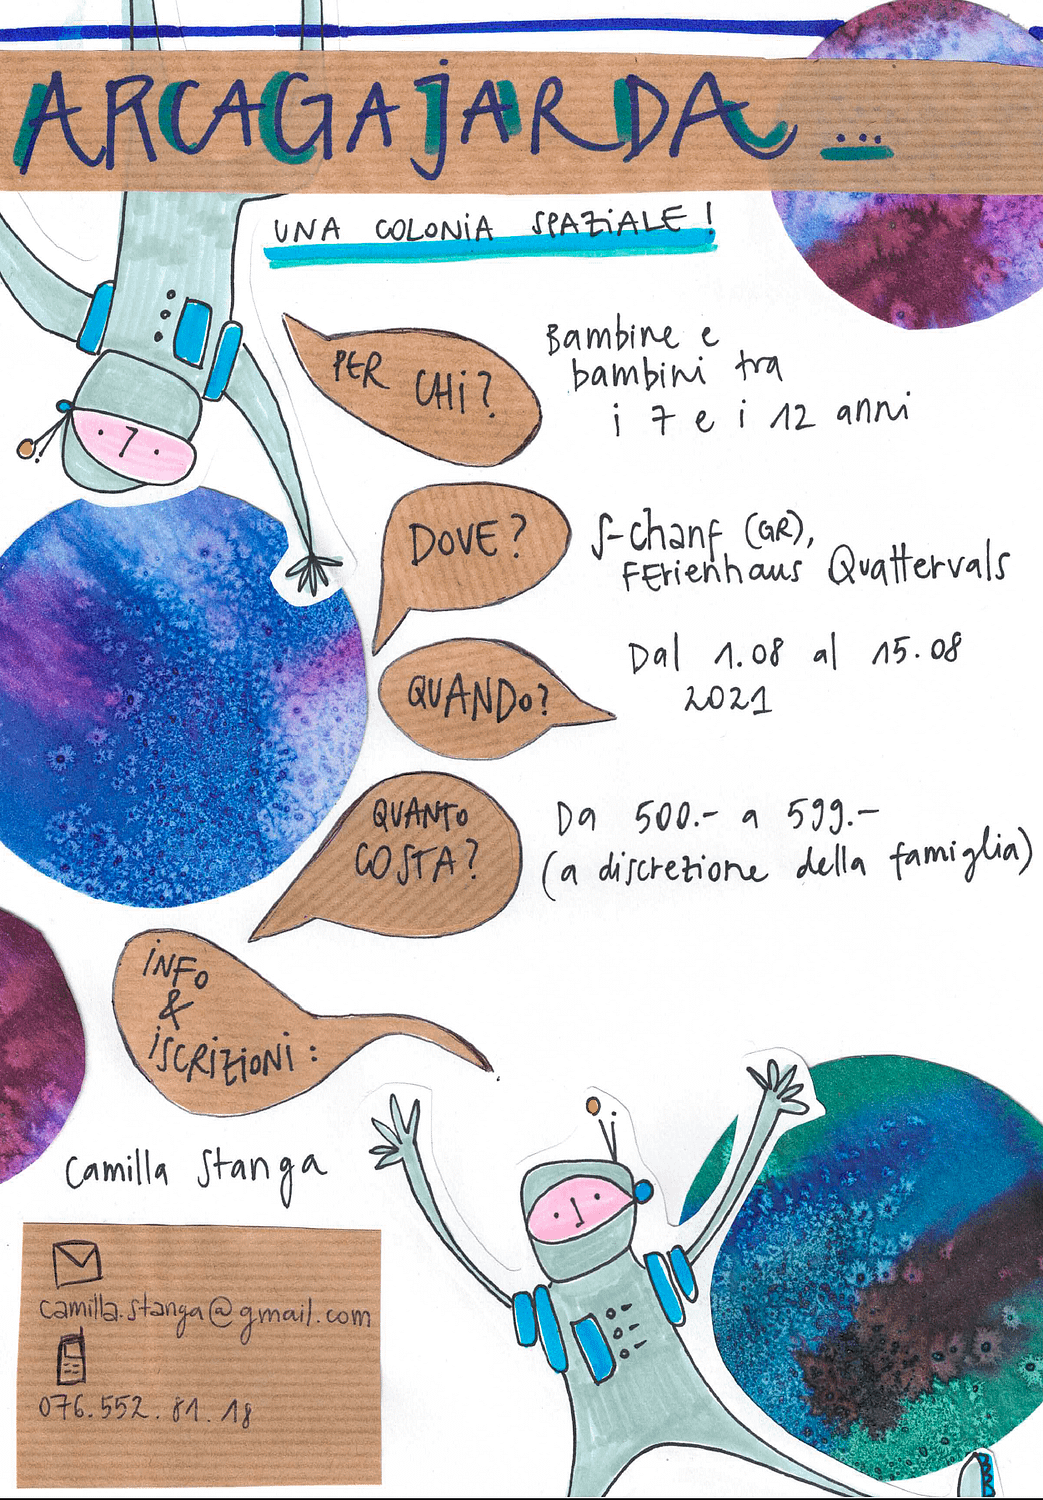 ARCAGAJARDA...
UNA COLONIA SPAZIALE!
PER CHI?
Bambine e
bambini tra
i 7 e i 12 anni
DOVE?
S-chanf (GR),
FErienhaus Quattervals
QUANDO?
Dal 1.08 al 15.08
2021
QUANTO
COSTA?
Da 500.- a 599.-
(a discrezione della famiglia)
iNFo
&
iSCRiZioNi:
Camilla Stanga
camilla.stanga@gmail.com
076.552.81.18